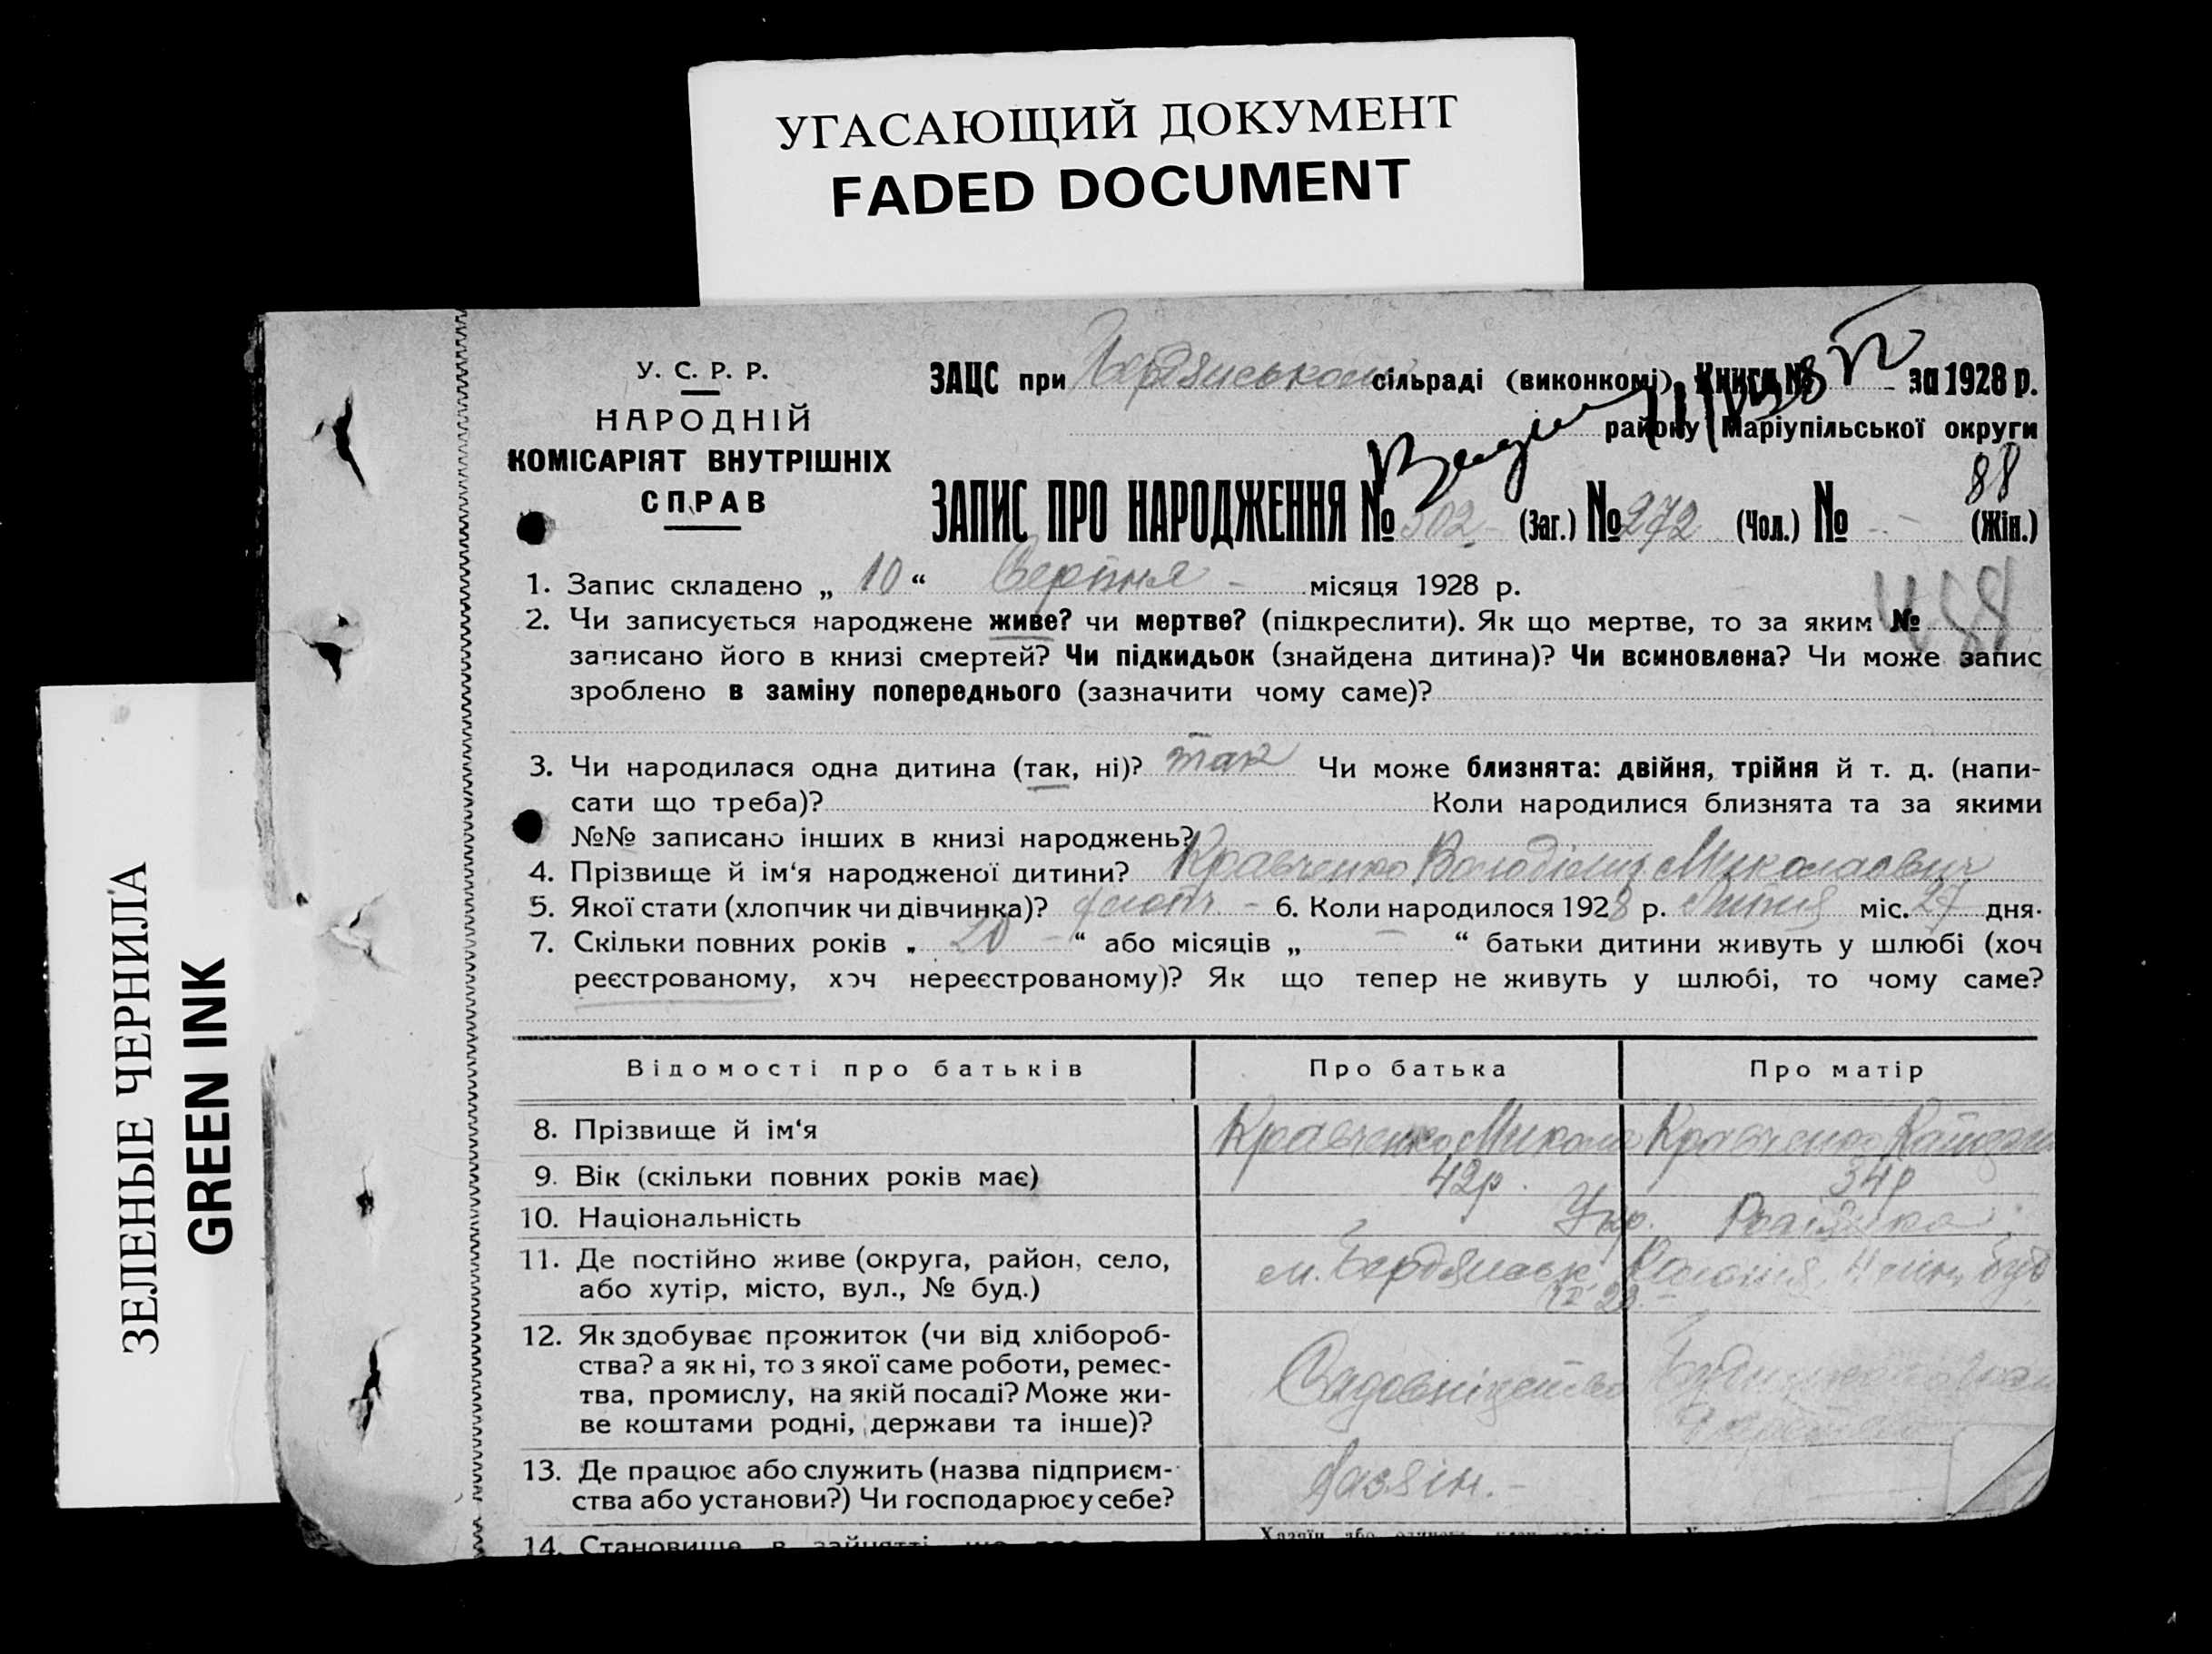 УГАСАЮЩИЙ ДОКУМЕНТ
FADED DOCUMENT
ЗЕЛЕНЫЕ ЧЕРНИЛА
GREEN INK
У. С. Р. Р.
НАРОДНІЙ
КОМІСАРІЯТ ВНУТРІШНІХ
СПРАВ
ЗАЦС при Бердянському сільраді (виконкомі) Книга № за 1928 р.
району Маріупільської округи
88
ЗАПИС ПРО НАРОДЖЕННЯ № 502 (Заг.) № 272 (Чол.) № - (Жін.)
1. Запис складено „ 10 “ Серпня - місяця 1928 р.
458
2. Чи записується народжене живе? чи мертве? (підкреслити). Як що мертве, то за яким №
записано його в книзі смертей? Чи підкидьок (знайдена дитина)? Чи всиновлена? Чи може запис
зроблено в заміну попереднього (зазначити чому саме)?
3. Чи народилася одна дитина (так, ні)? так Чи може близнята: двійня, трійня й т. д. (напи-
сати що треба)? Коли народилися близнята та за якими
№№ записано інших в книзі народжень?
4. Прізвище й ім‘я народженої дитини? Кравченко Володімир Миколаович
5. Якої стати (хлопчик чи дівчинка)? хлопч - 6. Коли народилося 1928 р. Липня міс. 27 дня.
7. Скільки повних років „ 20 “ або місяців „ - “ батьки дитини живуть у шлюбі (хоч
реєстрованому, хоч нереєстрованому)? Як що тепер не живуть у шлюбі, то чому саме?
Відомості про батьків Про батька Про матір
8. Прізвище й ім‘я Кравченко Микола Кравченко
9. Вік (скільки повних років має) 42р. 34р
10. Національність Укр. Росіянка
11. Де постійно живе (округа, район, село, м. Бердянськ Колонія, 4 лін, буд
або хутір, місто, вул., № буд.) № 28.
12. Як здобуває прожиток (чи від хлібороб-
ства? а як ні, то з якої саме роботи, ремес- Садовництво
тва, промислу, на якій посаді? Може жи-
ве коштами родні, держави та інше)?
13. Де працює або служить (назва підприєм- Хазяїн. -
ства або установи?) Чи господарює у себе?
14. Становище в зайнятті, що про
Хазяїн або член